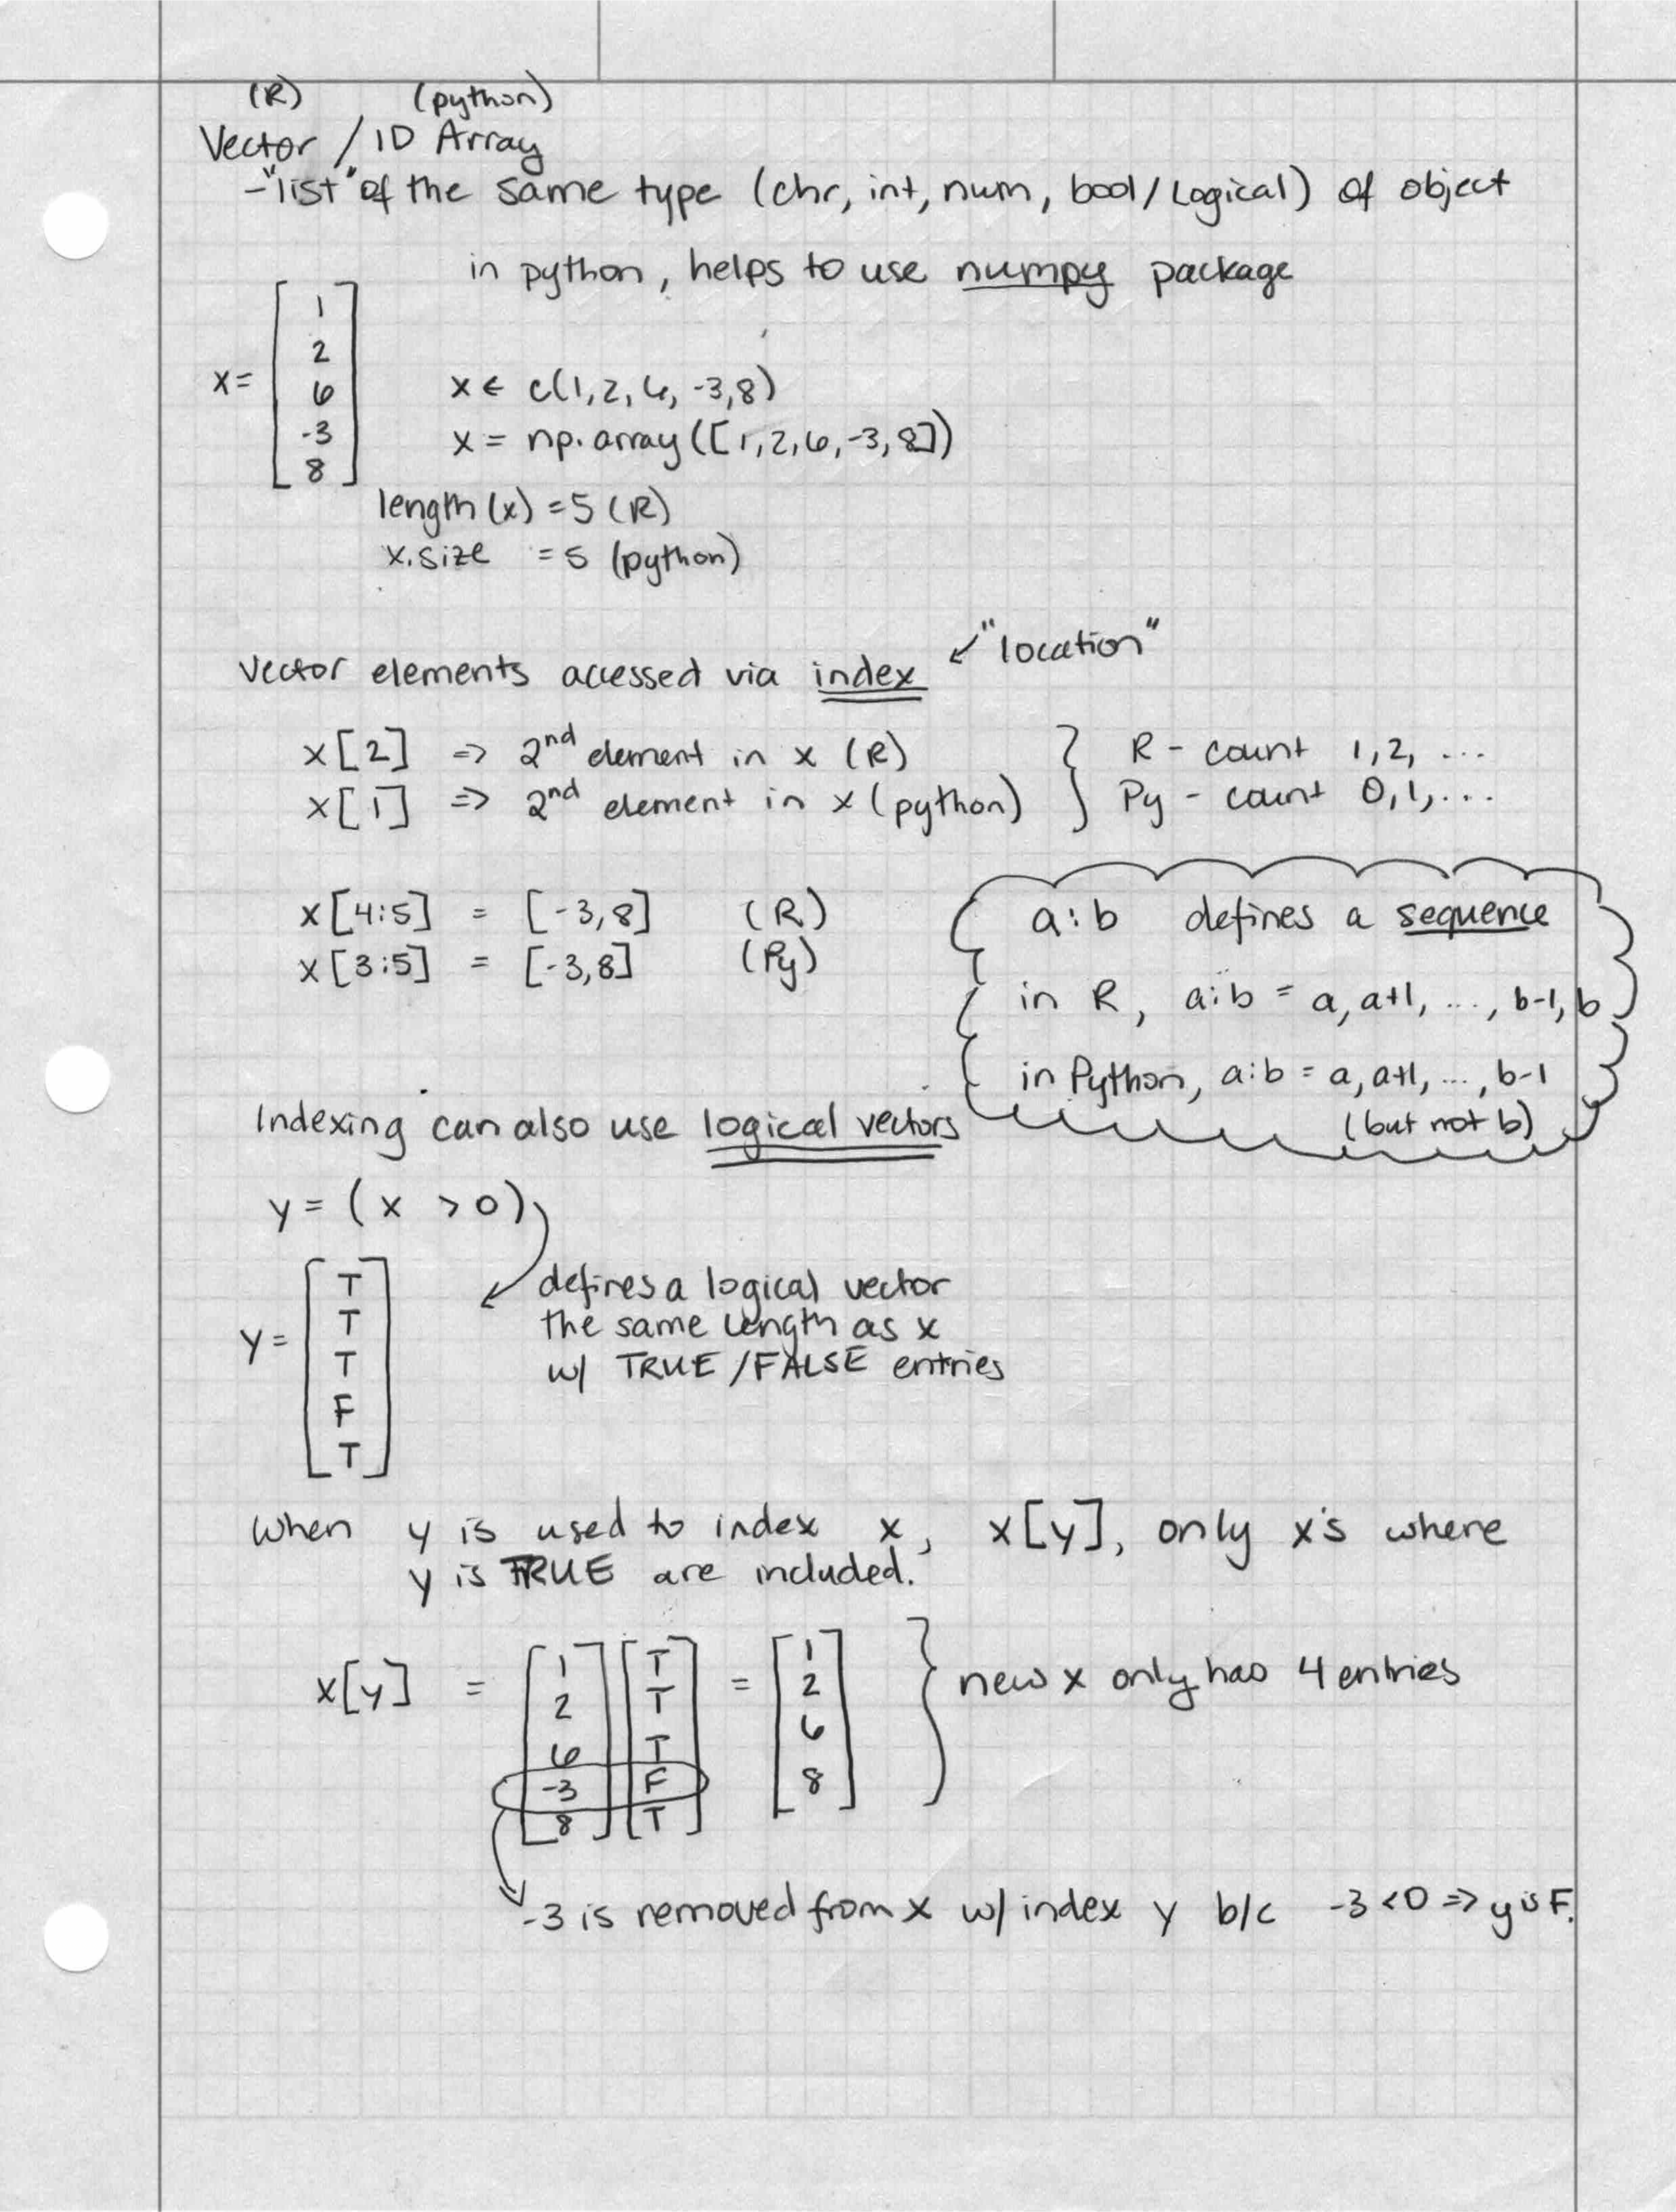 (R) (python)
Vector / 1D Array
-"list" of the same type (chr, int, num, bool/Logical) of object
in python, helps to use numpy package
x = [1
2
6
-3
8]
x ← c(1,2,6,-3,8)
x = np.array([1,2,6,-3,8])
length(x) = 5 (R)
x.size = 5 (python)
Vector elements accessed via index ↙ "location"
x[2] => 2nd element in x (R) } R - count 1,2, ...
x[1] => 2nd element in x (python) } Py - count 0,1,...
x[4:5] = [-3,8] (R)
x[3:5] = [-3,8] (Py)
a:b defines a sequence
in R, a:b = a, a+1, ..., b-1, b
in Python, a:b = a, a+1, ..., b-1
(but not b)
Indexing can also use logical vectors
y = (x > 0)
defines a logical vector
the same length as x
w/ TRUE/FALSE entries
y = [T
T
T
F
T]
When y is used to index x, x[y], only x's where
y is TRUE are included.
x[y] = [1 [T = [1
2 T 2
6 T 6
-3 F 8]
8] T]
} new x only has 4 entries
-3 is removed from x w/ index y b/c -3 <0 => y is F.